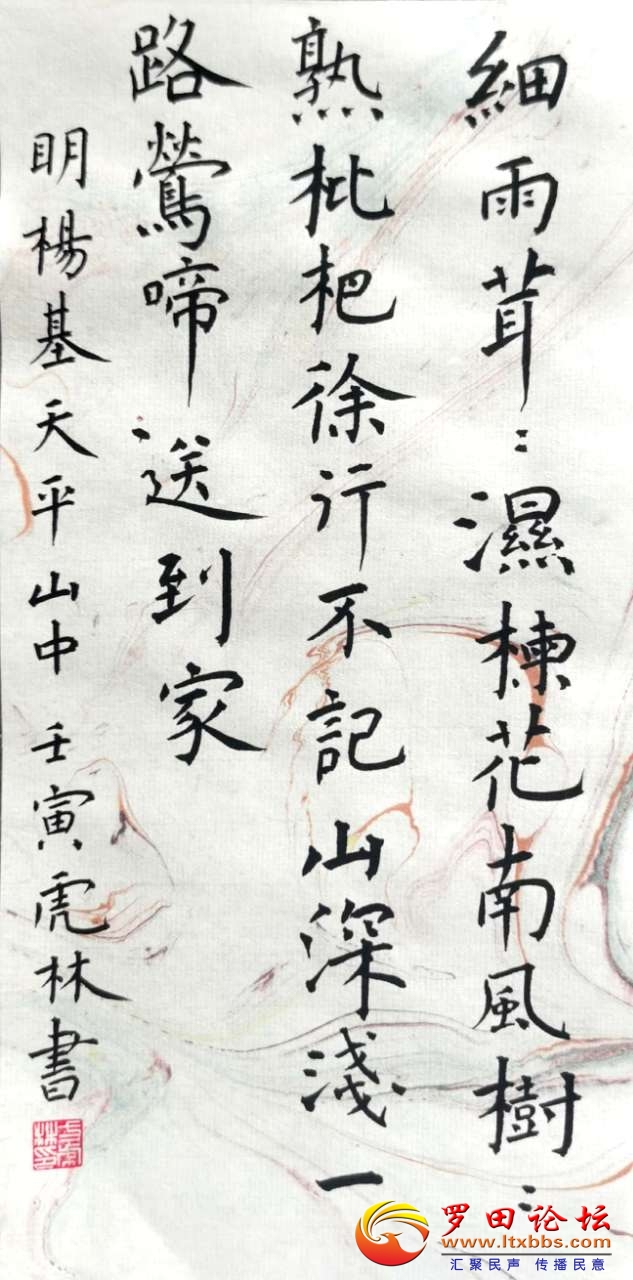 細雨茸:濕楝花南風樹:
熟枇杷徐行不記山深淺一
路鶯啼送到家
明楊基天平山中 壬寅虎林書
罗田论坛
www.ltxbbs.com
汇聚民声 传播民意